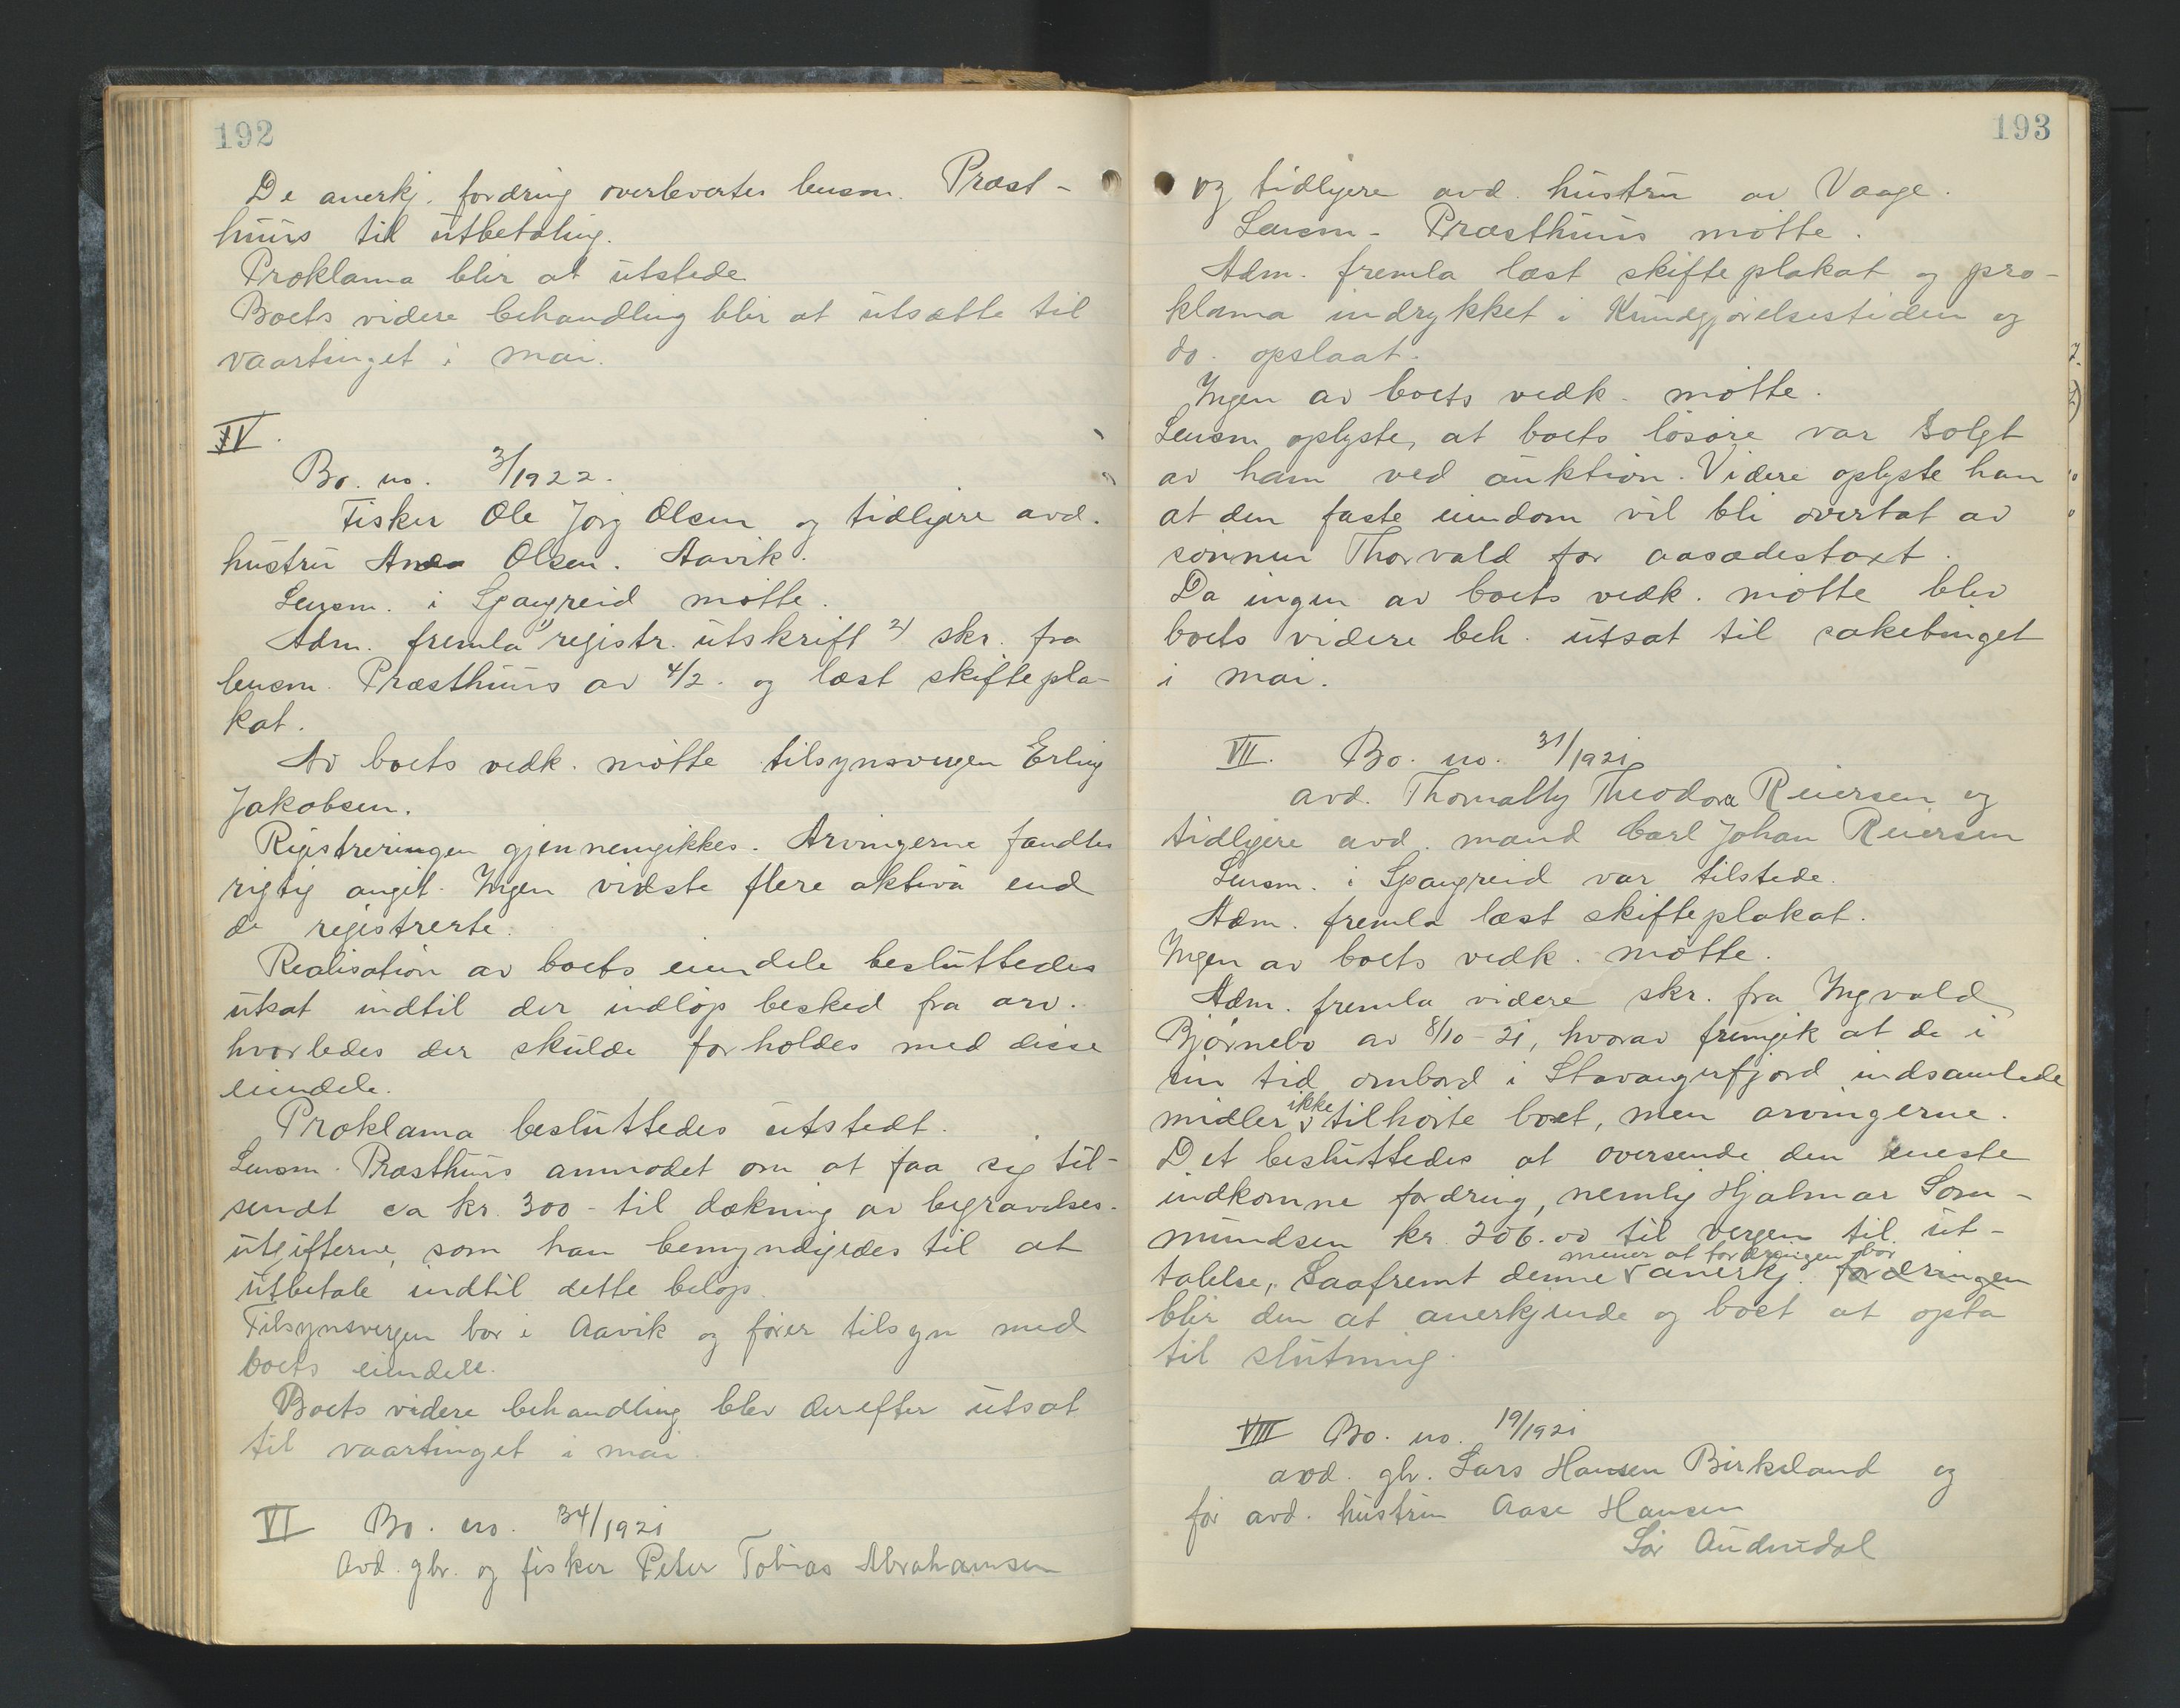 192
De anerkj. fordring overlevertes lensm. Præst-
huus til utbetaling.
Proklama blir at utstede
Boets videre behandling blir at utsætte til
vaartinget i mai.
IV.
Bo. no. 3/1922.
Fisker Ole Jørg Olsen og tidligere avd.
hustru Anda Olsen. Aavik.
Lensm. i Spangreid møtte.
Adm. fremla 1) registr. utskrift 2) skr. fra
lensm. Præsthuus av 4/2. og læst skiftepla-
kat.
Av boets vedk. møtte tilsynsvergen Erling
Jakobsen.
Registreringen gjennemgikkes. Arvingerne fandtes
rigtig angit. Ingen vidste flere aktiva end
de registrerte.
Realisation av boets eiendele besluttedes
utsat indtil der indløp besked fra arv.
hvorledes der skulde forholdes med disse
eiendele.
Proklama besluttedes utstedt.
Lensm. Præsthuus anmodet om at faa sig til-
sendt ca kr. 300 - til dækning av begravelses-
utgifterne, som han bemyndigedes til at
utbetale indtil dette beløp.
Tilsynsvergen bor i Aavik og fører tilsyn med
boets eiendele.
Boets videre behandling blev derefter utsat
til vaartinget i mai.
VI Bo. no. 34/1921
Avd. gbr. og fisker Peter Tobias Abrahamsen
193
og tidligere avd. hustru av Vaage.
Lensm - Præsthuus møtte.
Adm. fremla læst skifteplakat og pro-
klama indrykket i Kundgjørelsestiden og
do. opslaat.
Ingen av boets vedk. møtte.
Lensm. oplyste, at boets løsøre var solgt
av ham ved auktion. Videre oplyste han
at den faste eiendom vil bli overtat av
sønnen Thorvald for aasædestaxt.
Da ingen av boets vedk. møtte blev
boets videre beh. utsat til saketinget
i mai.
VII. Bo. no. 31/1921
avd. Thomally Theodora Reiersen og
tidligere avd. mand Carl Johan Reiersen
Lensm. i Spangreid var tilstede.
Adm. fremla læst skifteplakat.
Ingen av boets vedk. møtte.
Adm. fremla videre skr. fra Ingvald
Bjørnebo av 8/10 - 21, hvorav fremgik at de i
sin tid ombord i Stavangerfjord indsamlede
midler ikke tilhørte boet, men arvingerne.
Det besluttedes at oversende den eneste
indkomne fordring, nemlig Hjalmar Som-
mundsen kr. 206.00 til vergen til ut-
talelse, Saafremt denne mener at fordringen bør anerkj. fordringen
blir den at anerkjende og boet at opta
til slutning.
VIII Bo. no. 19/1921
avd. gbr. Lars Hansen Birkeland og
før avd. hustru Aase Hansen
Sør Audnedal